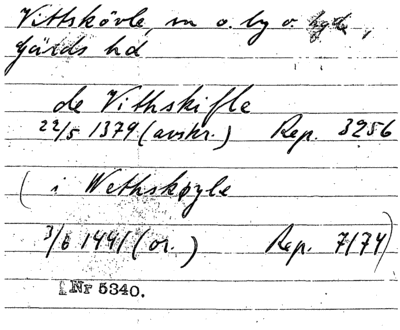 Vittskövle, sn o. by o. hgd,
Gärds hd
de Vithskifle
22/5 1379 (avskr.) Rep. 3256
( i Wethskøyle
3/6 1441 (or.) Rep. 7174)
Nr 5340.